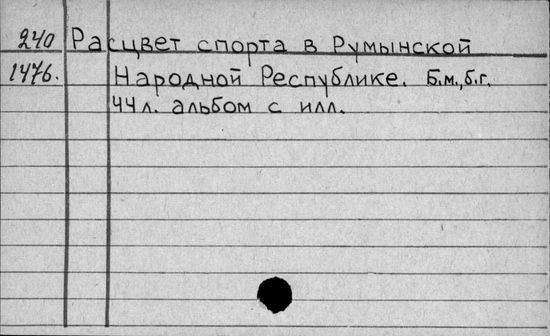 240 Расцвет спорта в Румынской
1476. Народной Республике. Б.м.,б.г.
44л. альбом с илл.